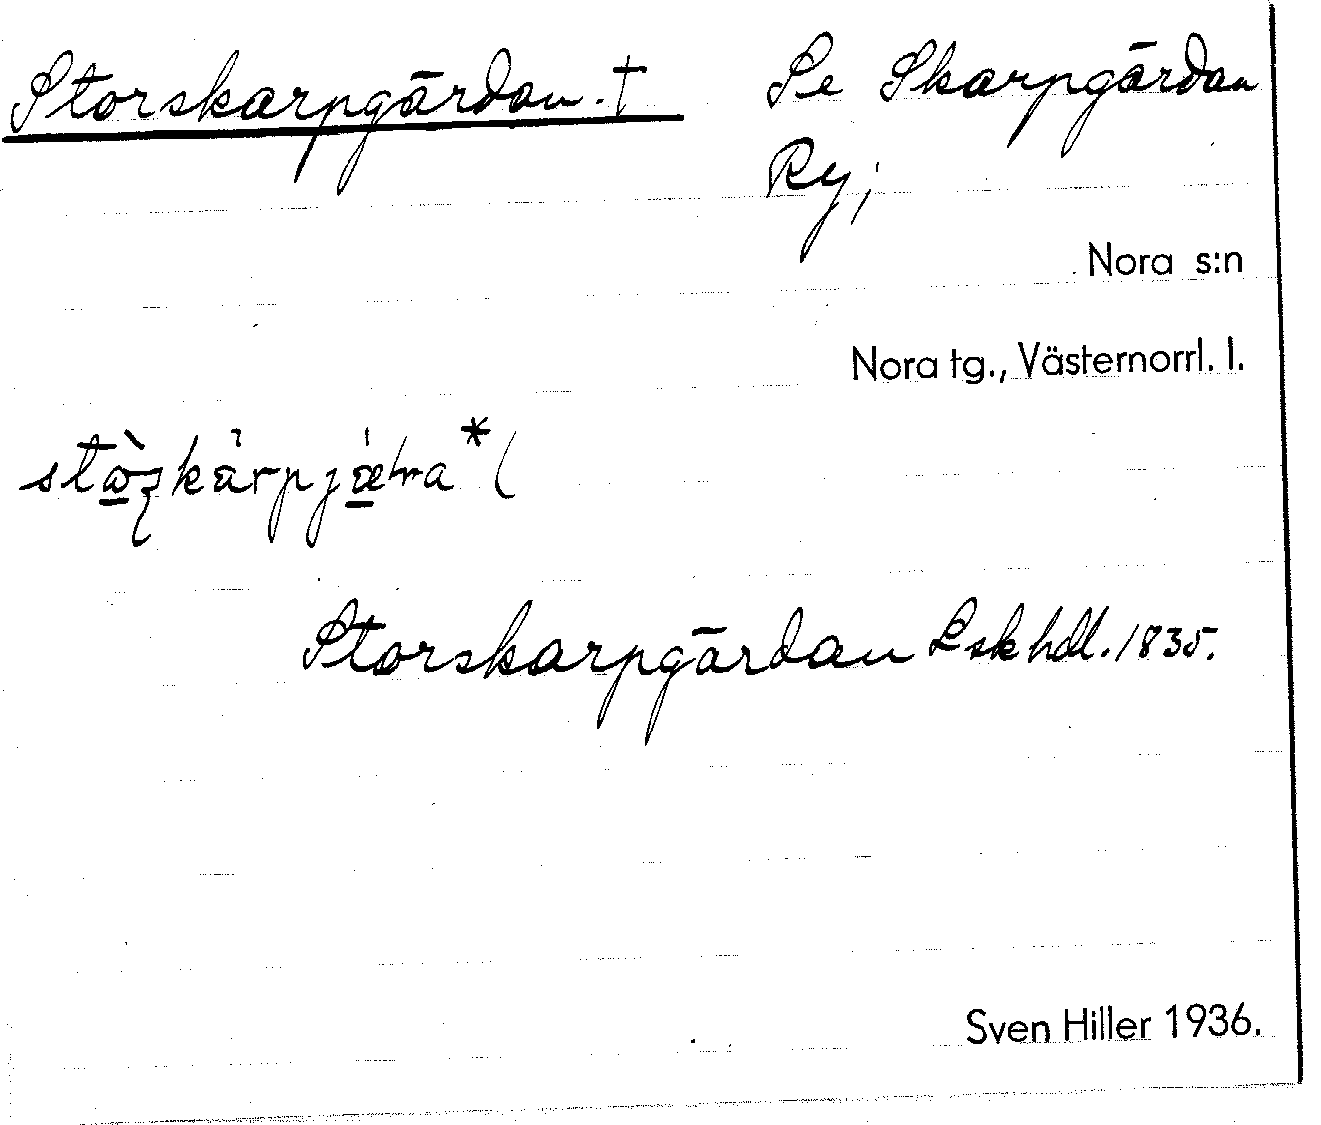 Storskarpgårdan. † Se Skarpgårdan
Ry;
Nora s:n
Nora tg., Västernorrl. l.
Storskarpgårdan Lskhdl. 1835.
Sven Hiller 1936.